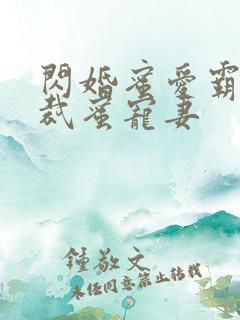 閃婚蜜愛霸
裁蜜寵妻
鍾敬文
未经同意禁止转载